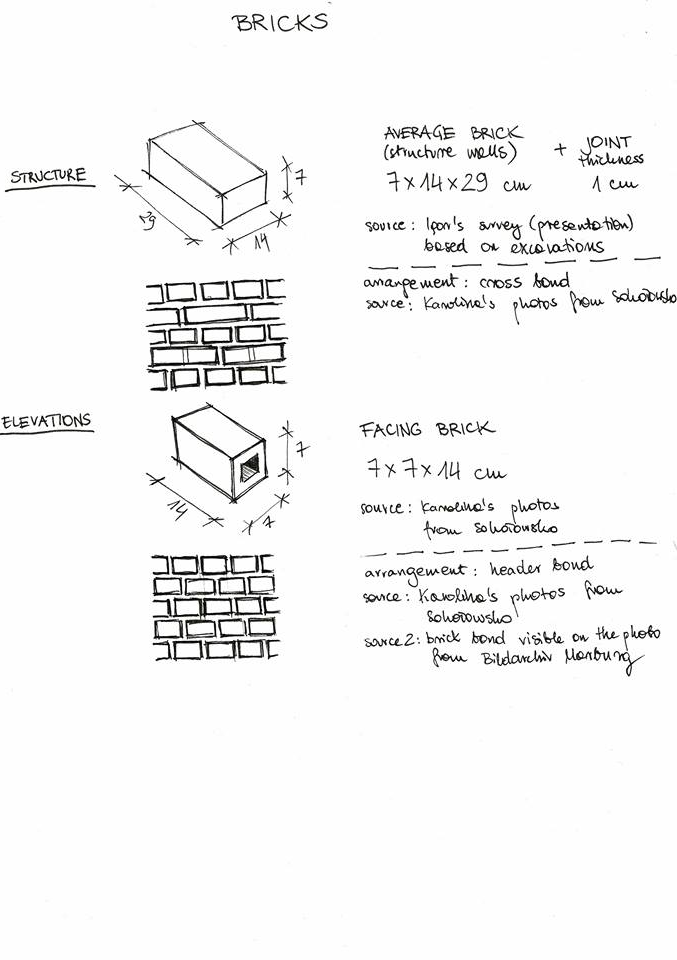 BRICKS
STRUCTURE
7
29
14
AVERAGE BRICK
(structure walls)
7 x 14 x 29 cm
+ JOINT
thickness
1 cm
source: Igor's survey (presentation)
based on excavations
arrangement: cross bond
source: Karolina's photos from Sokołowsko
ELEVATIONS
7
14
7
FACING BRICK
7 x 7 x 14 cm
source: Karolina's photos
from Sokołowsko
arrangement: header bond
source: Karolina's photos from
Sokołowsko
source 2: brick bond visible on the photo
from Bildarchiv Marburg